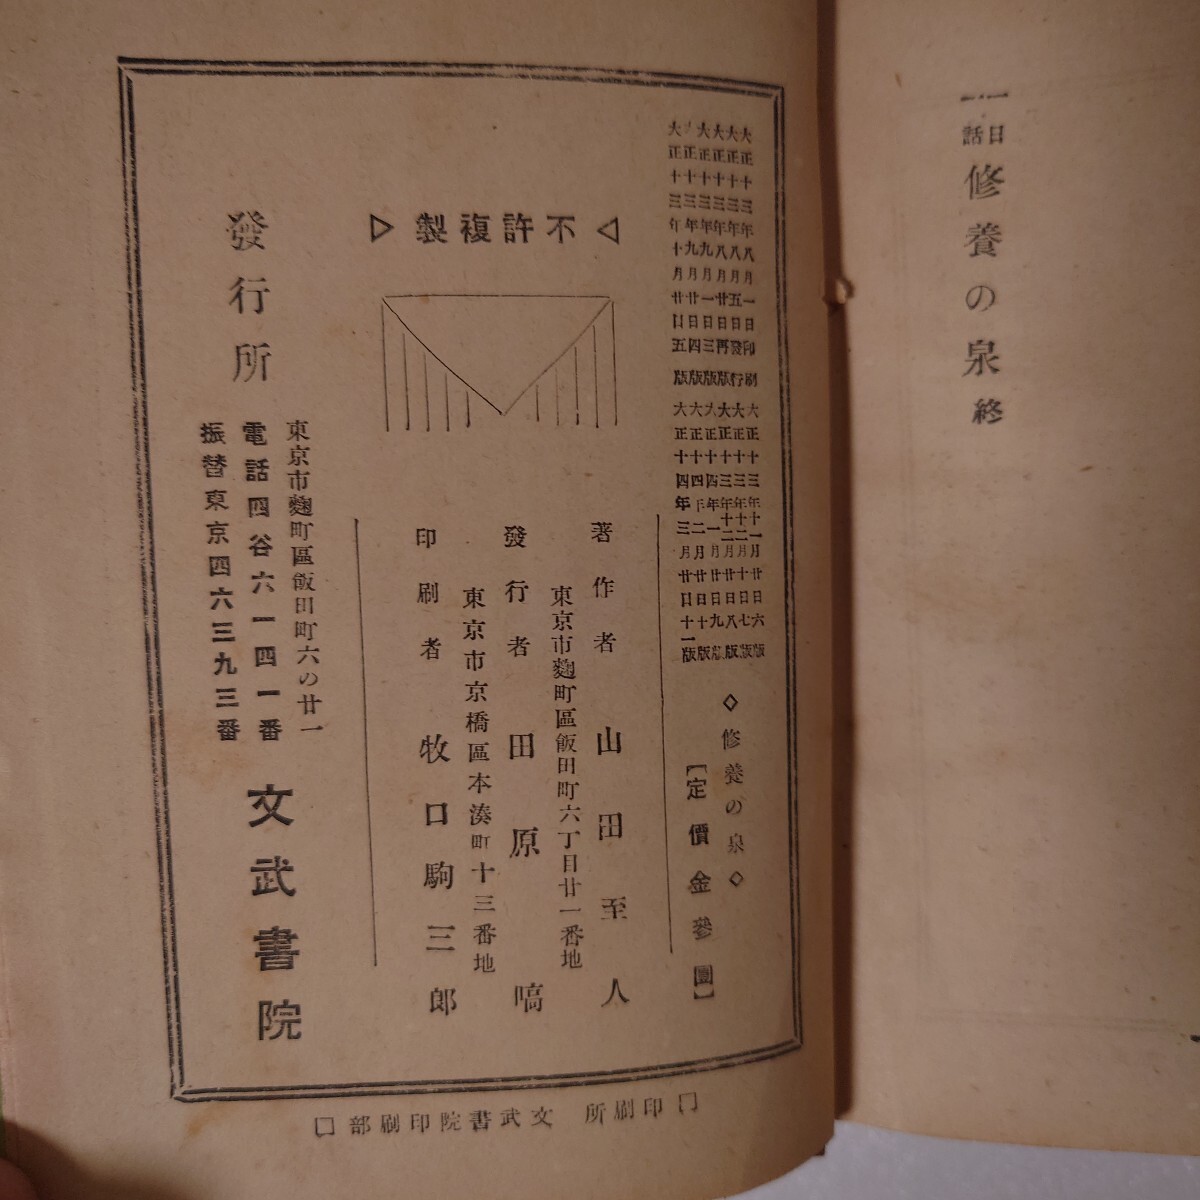 一日一話 修養の泉 終
大正十三年八月一日印刷
大正十三年八月五日發行
大正十三年八月廿日再版
大正十三年九月一日三版
大正十三年九月廿日四版
大正十三年十月廿日五版
大正十三年十一月廿日六版
大正十三年十二月十日七版
大正十三年十二月廿日八版
大正十四年一月廿日九版
大正十四年二月廿日十版
大正十四年三月廿日十一版
◇修養の泉◇
【定價金參圓】
不許複製
著作者 山田至人
東京市麴町區飯田町六丁目廿一番地
發行者 田原嗃
東京市京橋區本湊町十三番地
印刷者 牧口駒三郎
發行所
東京市麴町區飯田町六の廿一
電話四谷六一四一番
振替東京四六三九三番
文武書院
印刷所 文武書院印刷部